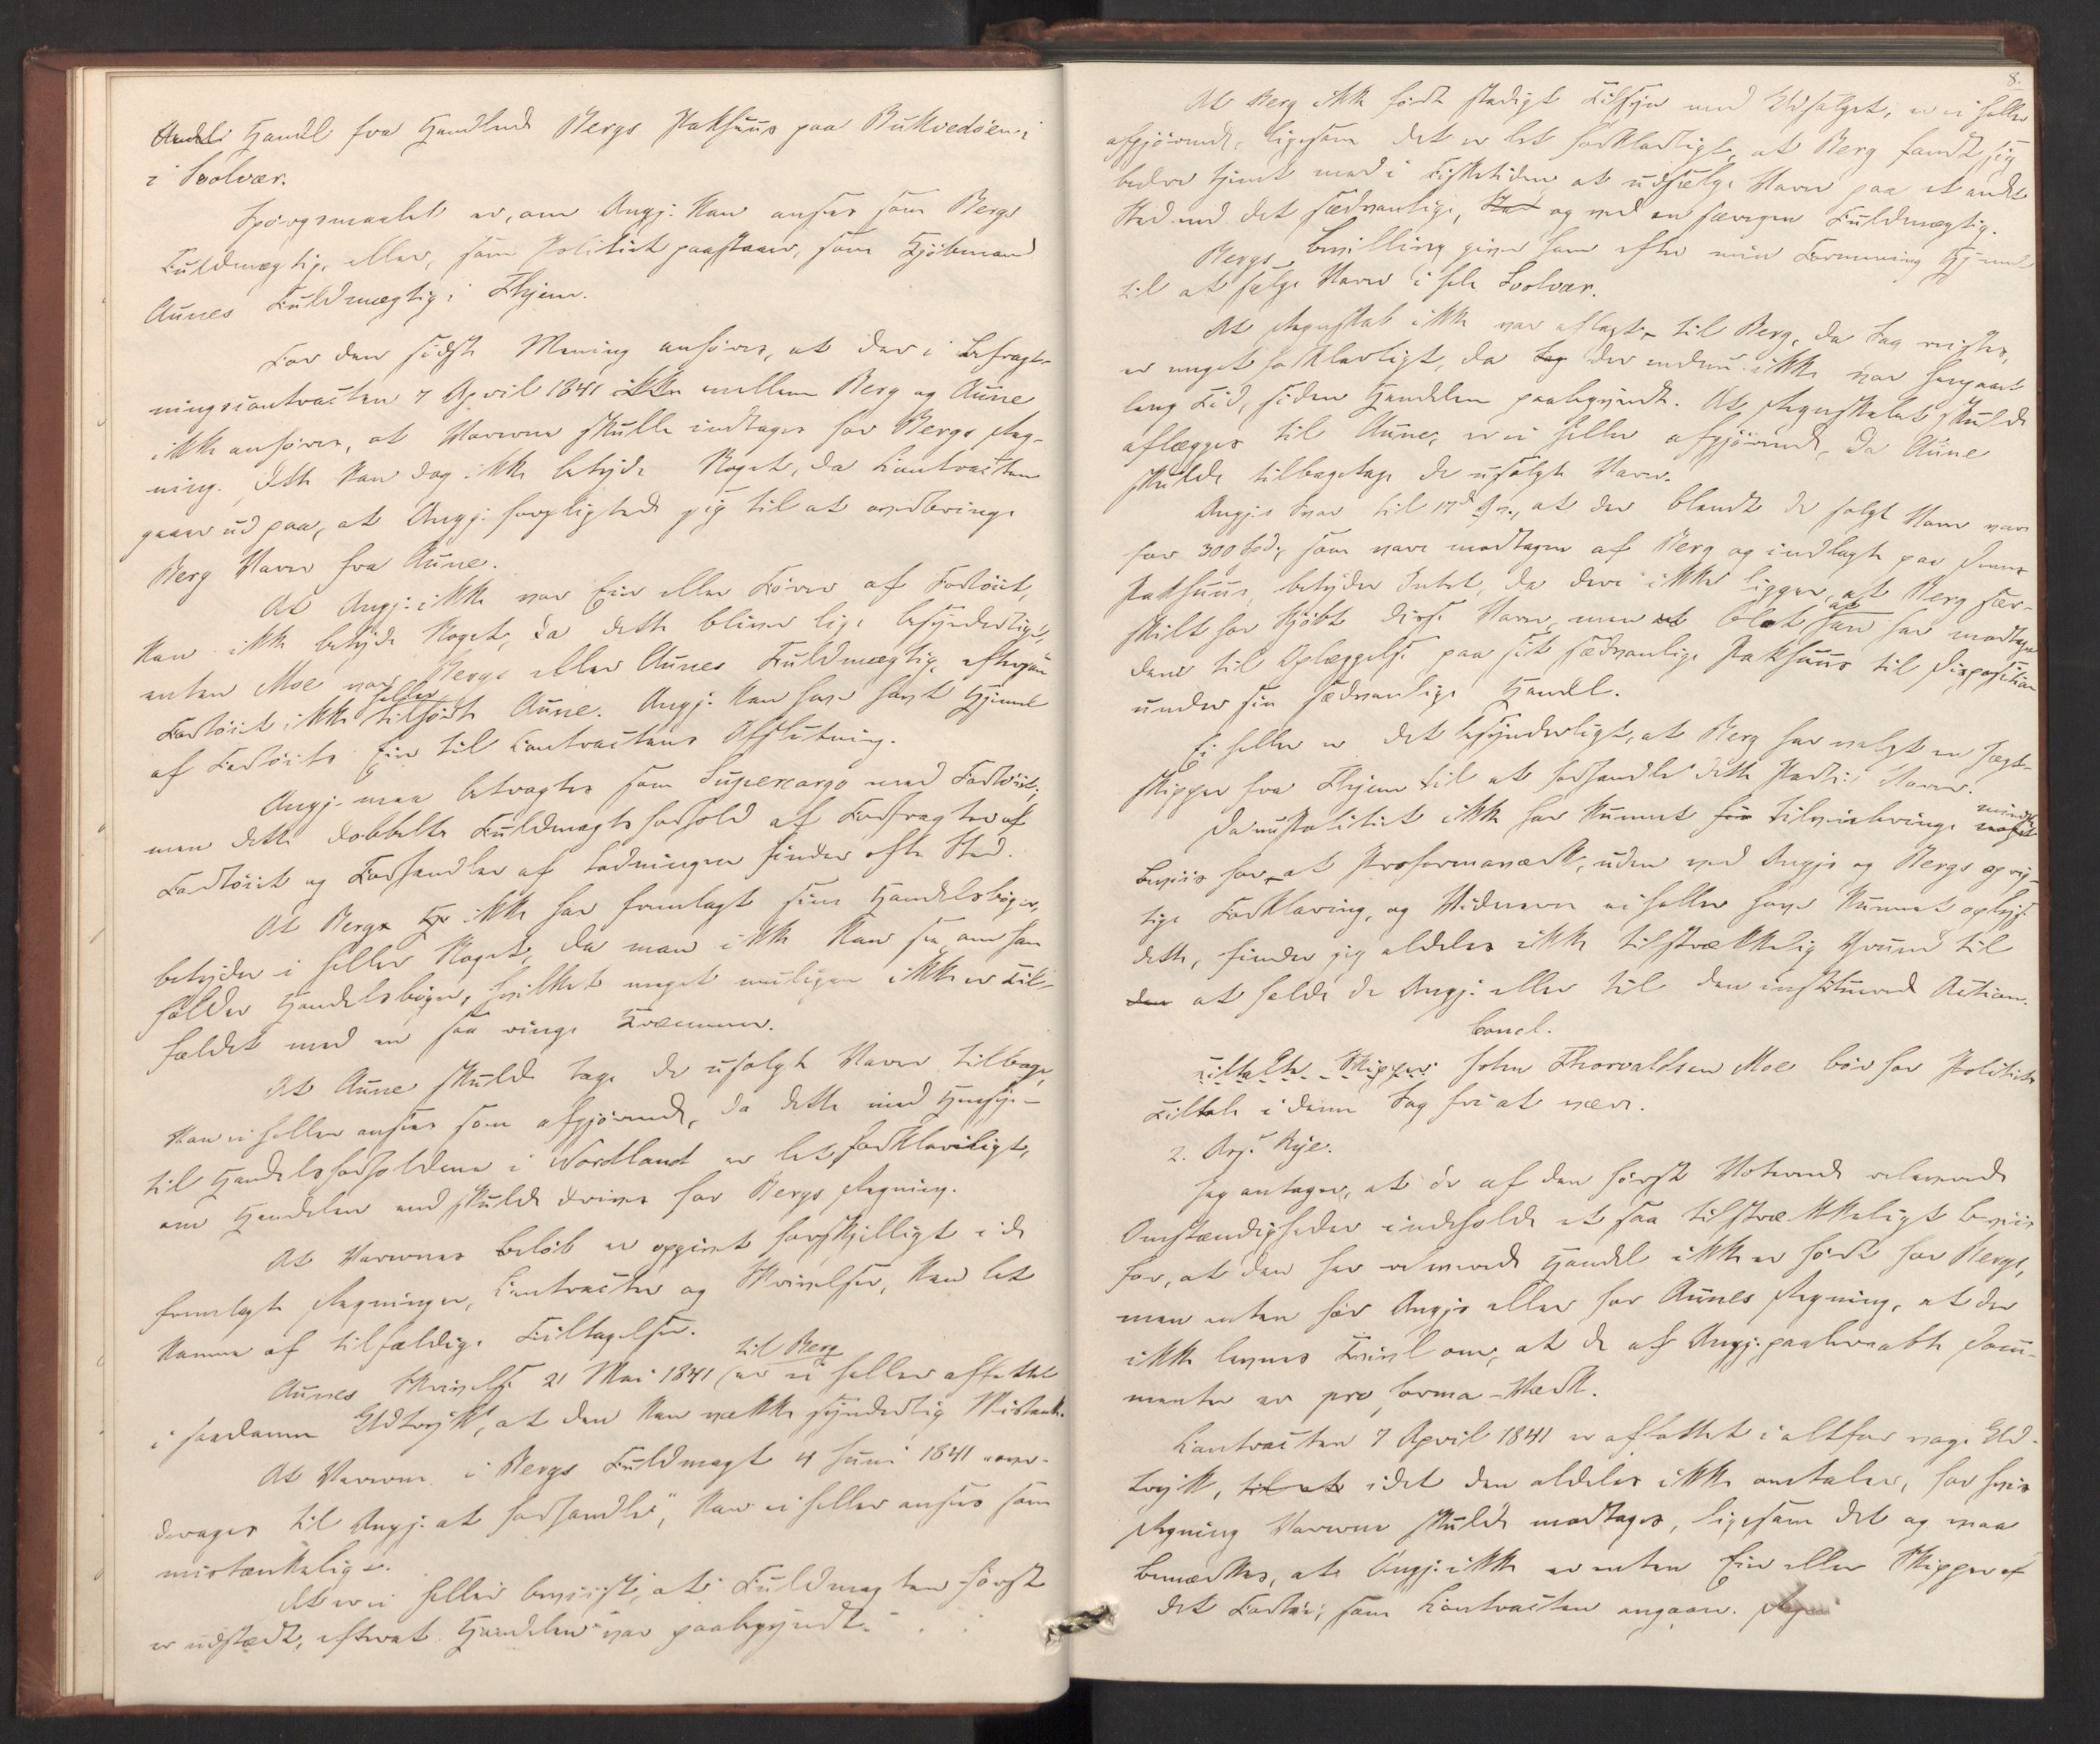 Handel fra Handlende Bergs Pakhuus paa Bukvedöen i
i Svolvær.
Spörgsmaalet er, om Angj. kan ansees som Bergs
Fuldmægtig, eller, som Politiet paastaaer, som Kjöbmand
Aunes Fuldmægtig i Thjem.
For den sidste Mening anföres, at der i Befragt-
ningscontracten 7 April 1841 mellem Berg og Aune
ikke anföres, at Varerne skulle indtages for Bergs Reg-
ning. Dette kan dog ikke betyde Noget, da Contracten
gaaer ud paa, at Angj. forpligtede sig til at overbringe
Berg Varer fra Aune.
At Angj. ikke var Eier eller Förer af Fartöiet,
kan ikke betyde Noget, da dette bliver lige besynderligt,
enten Moe var Bergs eller Aunes Fuldmægtig, eftersom
Fartöiet ikke heller tilhörte Aune. Angj. kan have havt Hjemmel
af Fartöiets Eier til Contractens Afslutning.
Angj. maa betragtes som Supercargo med Fartöiet;
men dette dobbelte Fuldmagtsforhold af Befragter af
Fartöiet og Forhandler af Ladningen finder ofte Sted.
At Berg ikke har fremlagt sine Handelsböger,
betyder ei heller Noget, da man ikke kan see, om han
holder Handelsböger, hvilket meget muligen ikke er Til-
fældet med en saa ringe Kræmmer.
At Aune skulde tage de usolgte Varer tilbage,
kan ei heller ansees som afgjörende, da dette med Hensyn
til Handelsforholdene i Nordland er let forklarligt,
om Handelen end skulde drives for Bergs Regning.
At Varernes Belöb er opgivet forskjelligt i de
fremlagte Regninger, Contracter og Skrivelser, kan let
komme af tilfældige Tiltagelser.
Aunes Skrivelse 21 Mai 1841 til Berg er ei heller affattet
i saadanne Udtryk, at den kan vække synderlig Mistanke.
At Varerne i Bergs Fuldmagt 4 Juni 1841 "over-
drages til Angj. at forhandle", kan ei heller ansees som
mistænkeligt.
Det er ei heller beviist, at Fuldmagten först
er udstædt, efterat Handelen var paabegyndt.
8.
At Berg ikke förte stadigt Tilsyn med Udsalget, er ei heller
afgjörende, ligesom det er let forklarligt, at Berg fandt sig
bedre tjent med i Fisketiden at udsælge Varer paa et andet
Sted end det sædvanlige, og ved en særegen Fuldmægtig.
Bergs Bevilling giver ham efter min Formening Hjemmel
til at sælge Varer i hele Svolvær.
At Regnskab ikke var aflagt til Berg, da Sag reistes,
er meget forklarligt, da der endnu ikke var hengaaet
lang Tid, siden Handelen paabegyndte. At Regnskabet skulde
aflægges til Aune, er ei heller afgjörende, da Aune
skulde tilbagetage de usolgte Varer.
Angjs Svar til 17de Sp., at der blandt de solgte Varer var
for 300 Spd., som vare modtagne af Berg og indlagte paa dennes
Pakhuus, betyder Intet, da deri ikke ligger, at Berg sær-
skilt har kjöbt disse Varer, men blot at han har modtaget
dem til Oplæggelse paa sit sædvanlige Pakhuus til Disposition
under sin sædvanlige Handel.
Ei heller er det besynderligt, at Berg har valgt en Jægt-
skipper fra Thjem til at forhandle dette Parti Varer.
Da nu Politiet ikke har kunnet tilveiebringe mindste
Beviis for at Proformaværk, uden ved Angjs og Bergs oprig-
tige Forklaring, og Vidnerne ei heller have kunnet oplyse
dette, finder jeg aldeles ikke tilstrækkelig Grund til
at fælde de Angj. eller til den instituerede Action.
Concl.
Tiltalte Skipper John Thorvaldsen Moe bör for Politiets
Tiltale i denne Sag fri at være.
2. Ass. Rye.
Jeg antager, at de af den förste Voterende relaterede
Omstændigheder indeholde et saa tilstrækkeligt Beviis
for, at den her omhandlede Handel ikke er fört for Bergs,
men enten for Angjs eller for Aunes Regning, at der
ikke levnes Tvivl om, at de af Angj. paaberaabte Docu-
menter er pro forma-Værk.
Contracten 7 April 1841 er affattet i altfor vage Ud-
tryk, idet den aldeles ikke omtaler, for hvis
Regning Varerne skulde modtages, ligesom det og maa
bemærkes, at Angj. ikke er enten Eier eller Skipper af
det Fartöi, som Contracten angaaer.